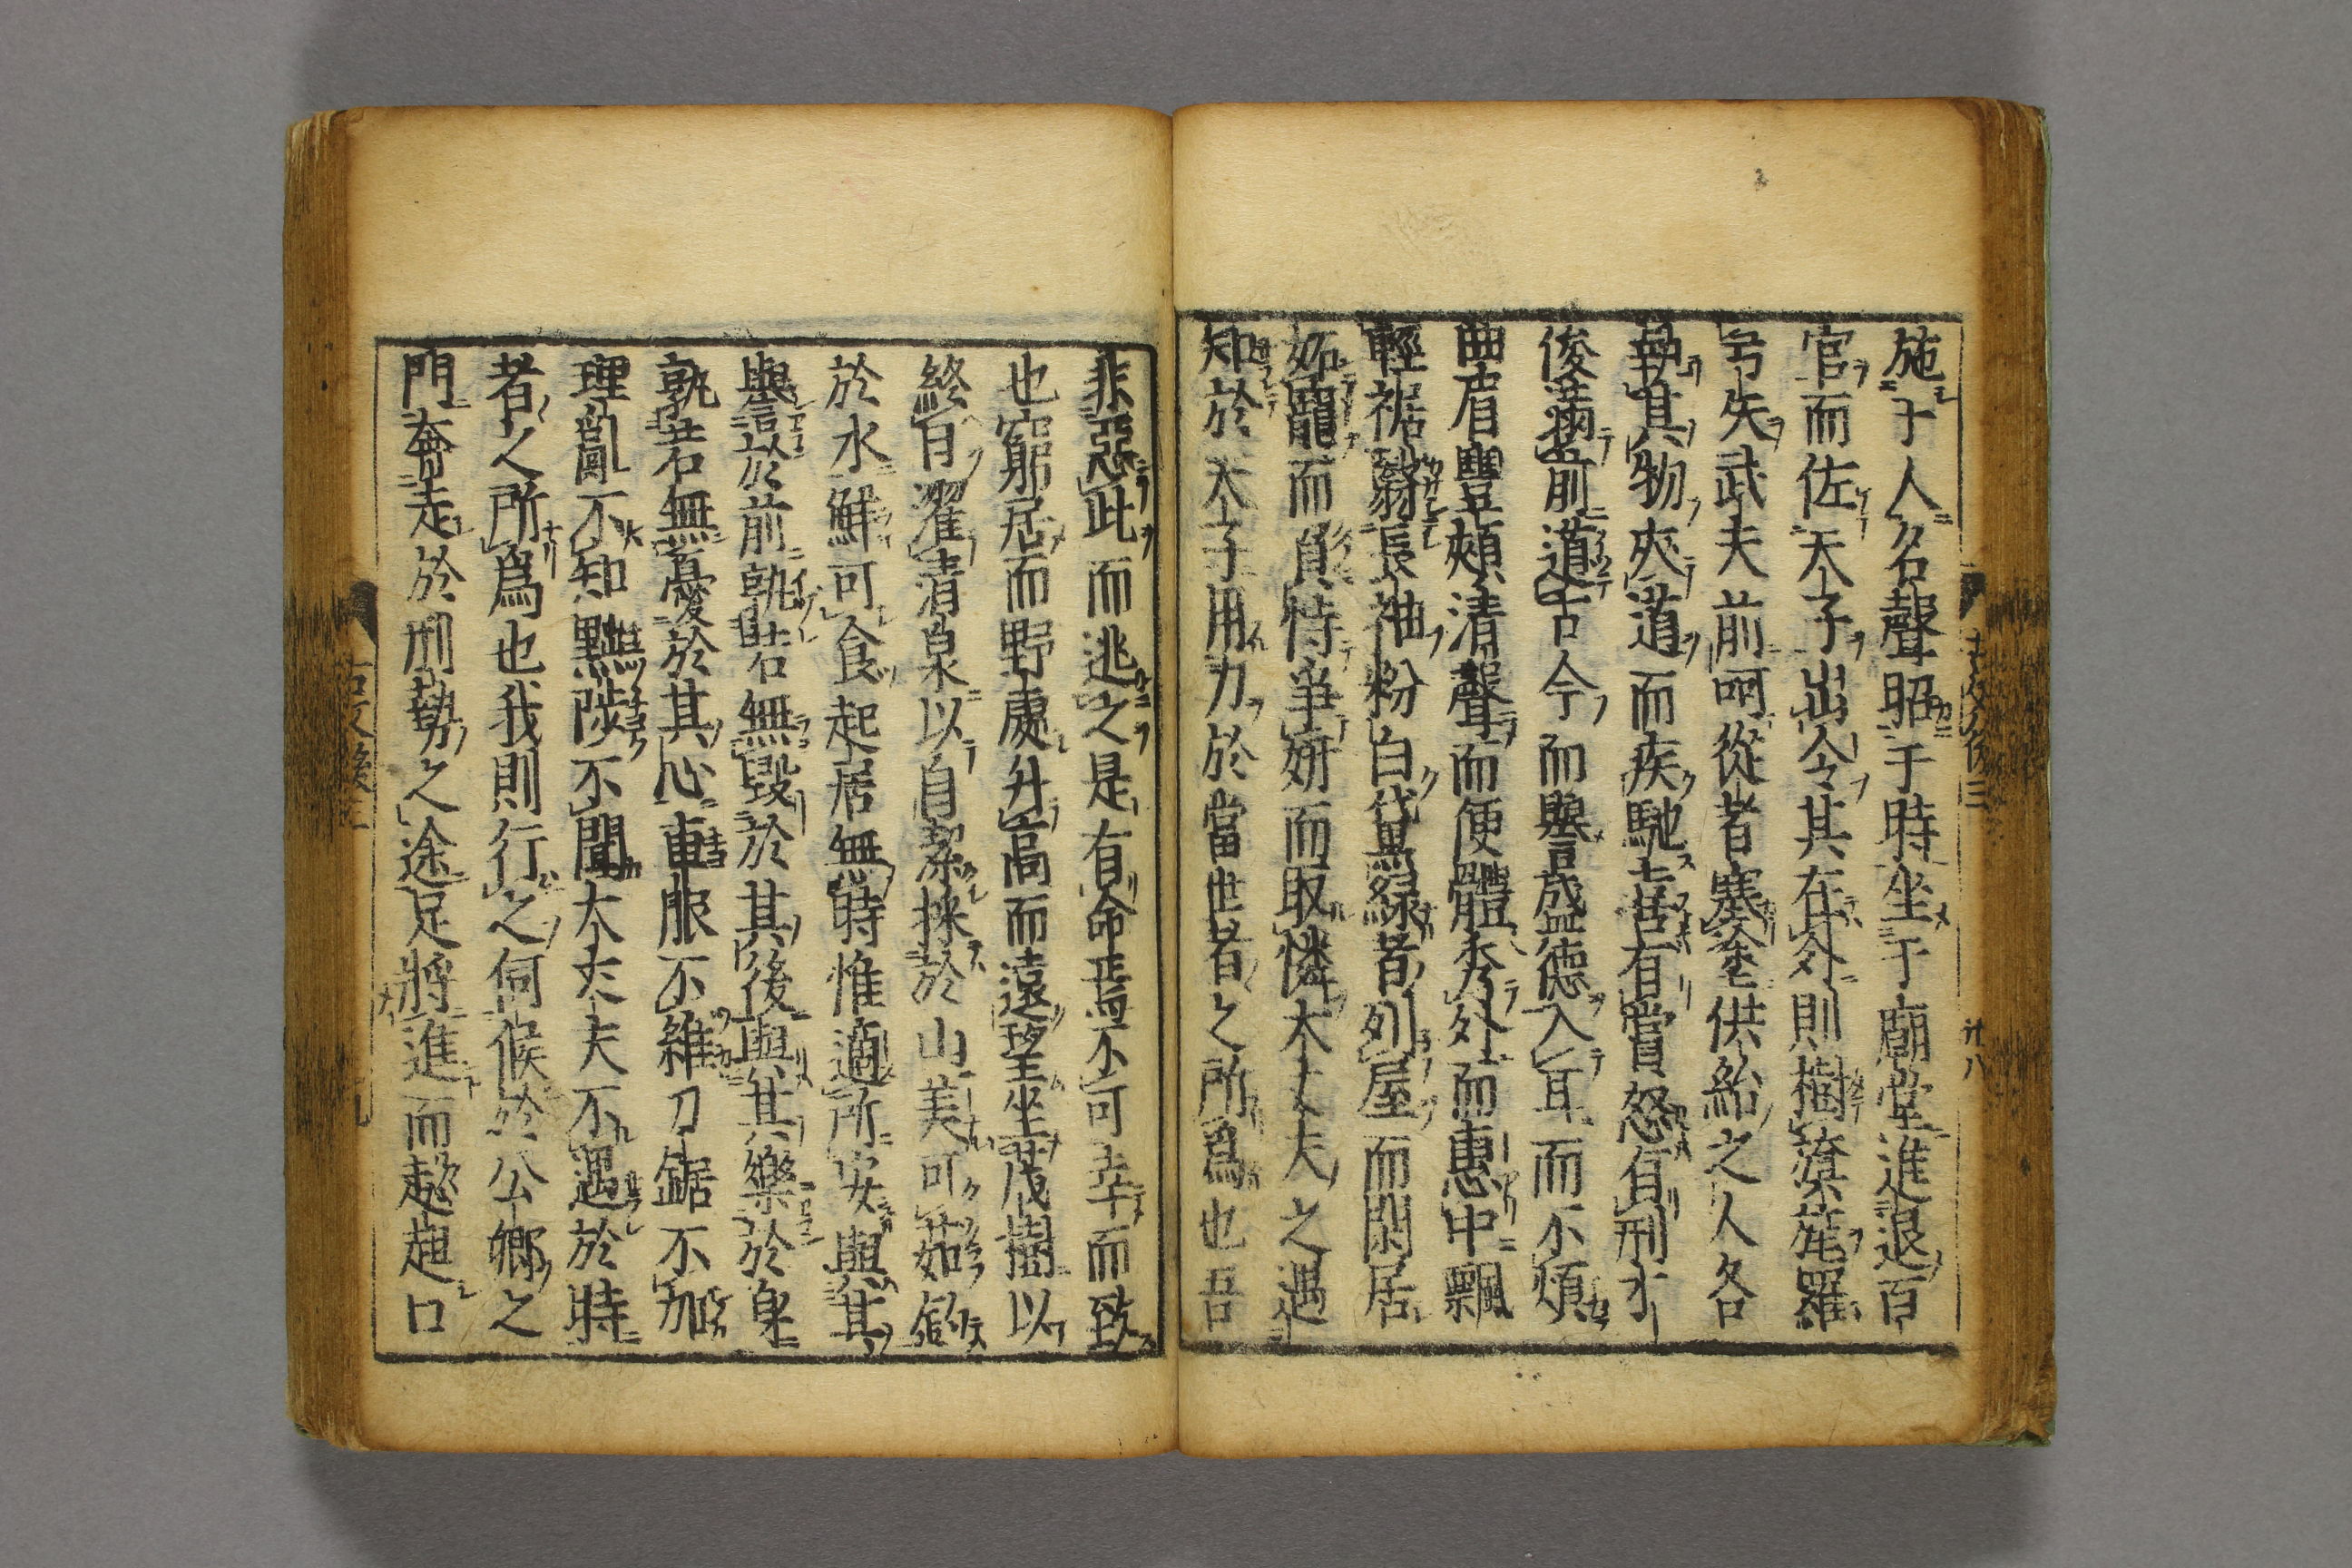 施于人名聲昭于時坐于廟堂進退百
官而佐天子出令其在外則樹旗旄羅
弓矢武夫前呵從者塞途供給之人各
執其物夾道而疾馳喜有賞怒有刑才
俊滿前道古今而譽盛德入耳而不煩
曲眉豐頰清聲而便體秀外而惠中飄
輕裾翳長袖粉白黛緑者列屋而閑居
妬寵而負恃爭妍而取憐大丈夫之遇
知於天子用力於當世者之所爲也吾
非惡此而逃之是有命焉不可幸而致
也窮居而野處升高而遠望坐茂樹以
終日濯清泉以自潔採於山美可茹釣
於水鮮可食起居無時惟適所安與其
譽於前孰若無毀於其後與其樂於身
孰若無憂於其心車服不維刀鋸不加
理亂不知黜陟不聞大丈夫不遇於時
者之所爲也我則行之伺候於公卿之
門奔走於形勢之途足將進而趑趄口
古文後三
廿八